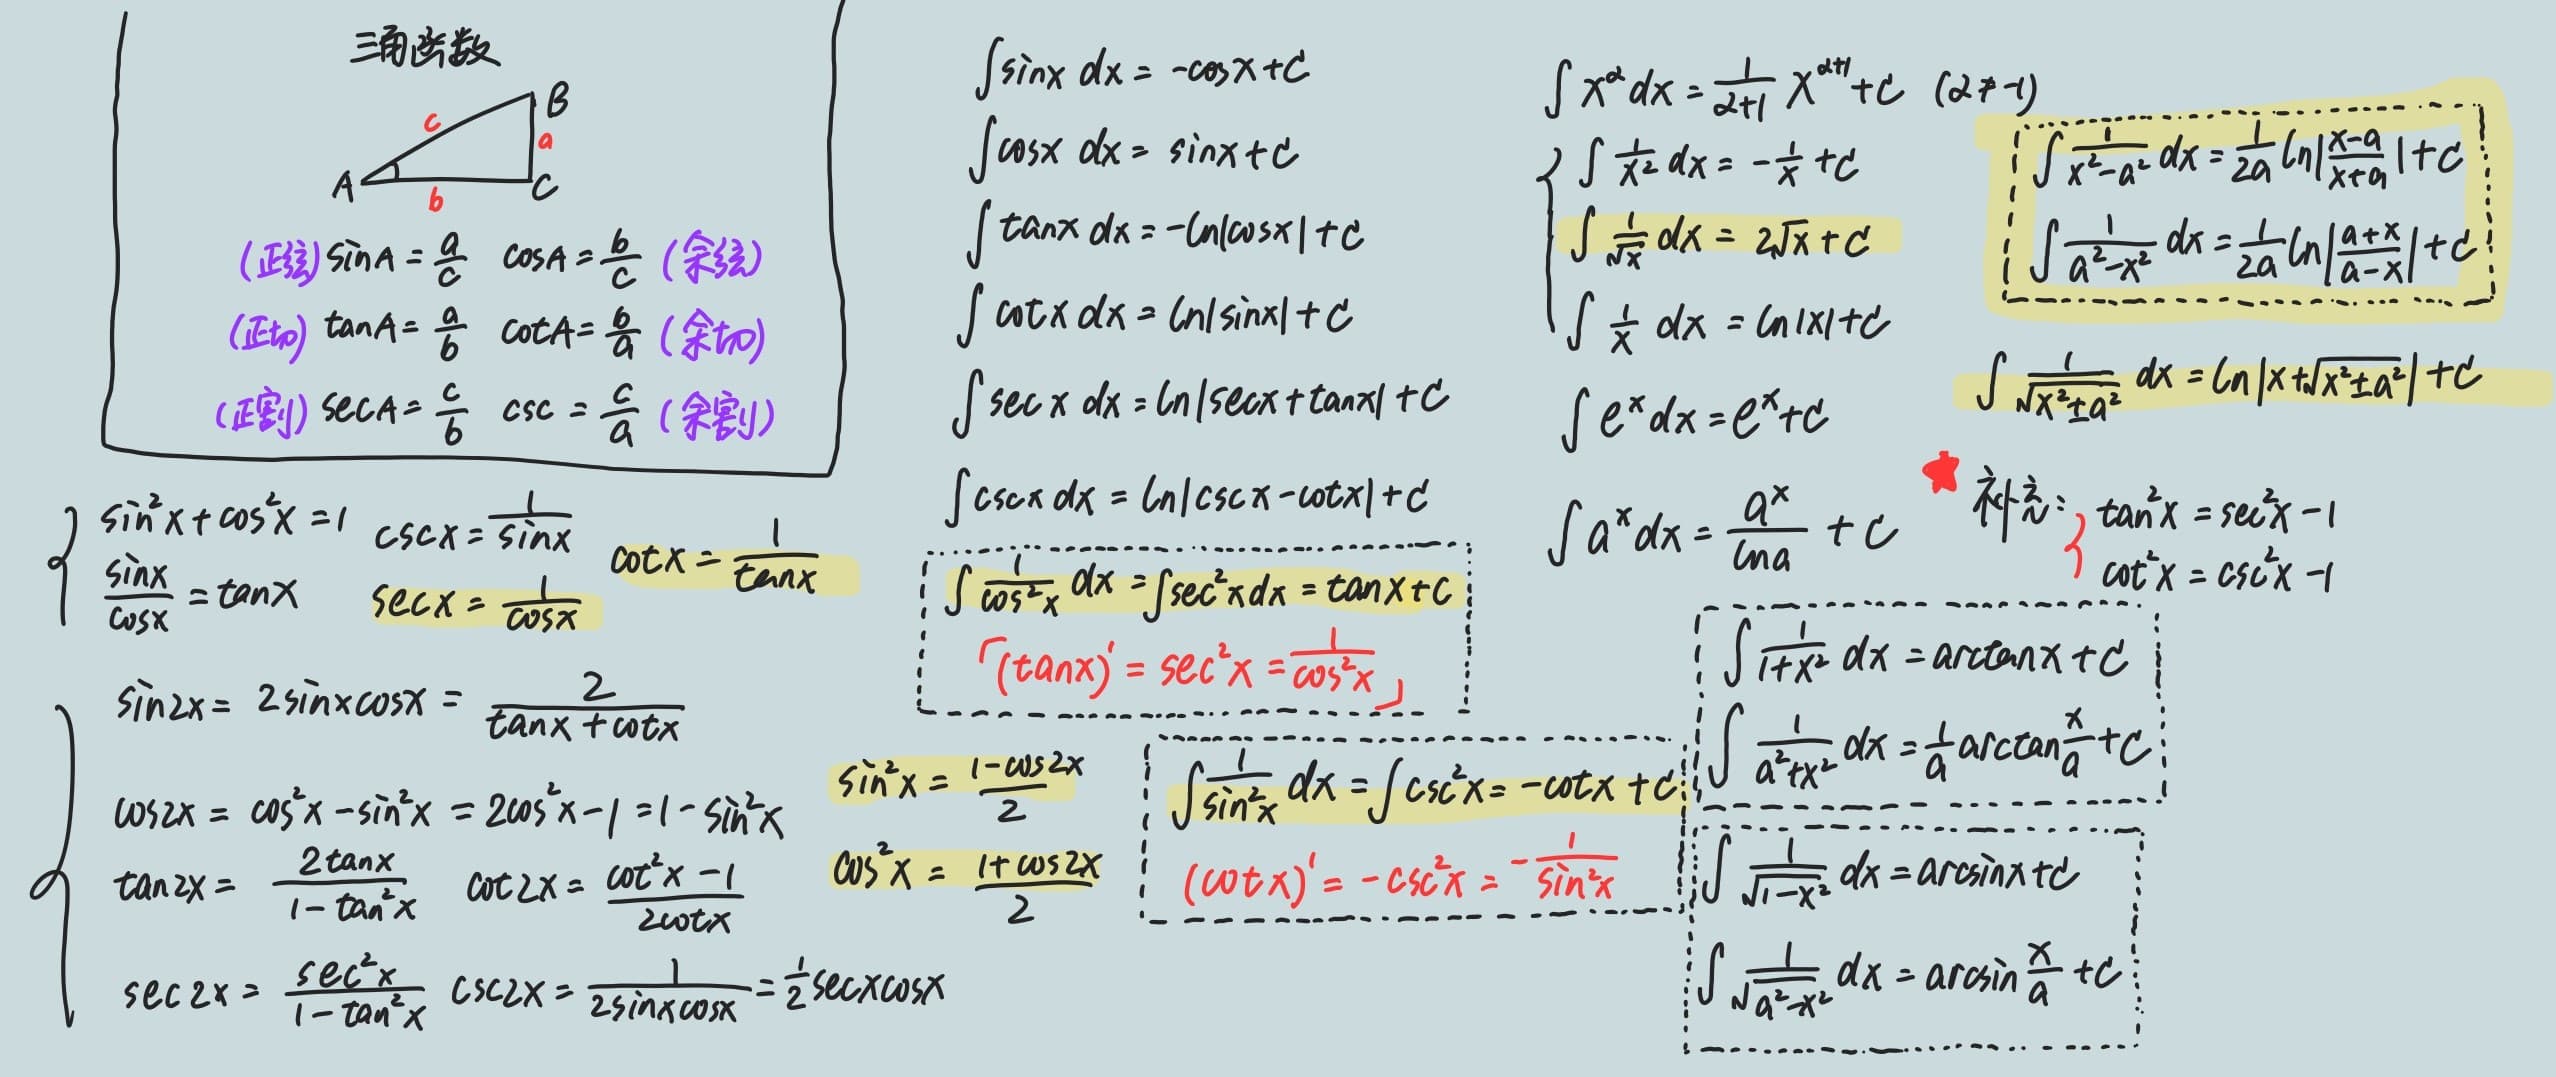 三角函数
B
c
a
A
b
C
(正弦) sinA = a/c cosA = b/c (余弦)
(正切) tanA = a/b cotA = b/a (余切)
(正割) secA = c/b csc = c/a (余割)
sin²x + cos²x = 1
sinx/cosx = tanx
cscx = 1/sinx
secx = 1/cosx
cotx = 1/tanx
sin2x = 2sinxcosx = 2/(tanx + cotx)
cos2x = cos²x - sin²x = 2cos²x - 1 = 1 - sin²x
tan2x = 2tanx/(1 - tan²x) cot2x = (cot²x - 1)/(2cotx)
sec2x = sec²x/(1 - tan²x) csc2x = 1/(2sinxcosx) = 1/2 secxcosx
sin²x = (1 - cos2x)/2
cos²x = (1 + cos2x)/2
∫sinx dx = -cosx + C
∫cosx dx = sinx + C
∫tanx dx = -ln|cosx| + C
∫cotx dx = ln|sinx| + C
∫secx dx = ln|secx + tanx| + C
∫cscx dx = ln|cscx - cotx| + C
∫1/cos²x dx = ∫sec²x dx = tanx + C
「(tanx)' = sec²x = 1/cos²x」
∫1/sin²x dx = ∫csc²x = -cotx + C
(cotx)' = -csc²x = -1/sin²x
∫x^α dx = 1/(α+1) x^(α+1) + C (α ≠ -1)
∫1/x² dx = -1/x + C
∫1/√x dx = 2√x + C
∫1/x dx = ln|x| + C
∫e^x dx = e^x + C
∫a^x dx = a^x/lna + C
∫1/(x²-a²) dx = 1/2a ln|(x-a)/(x+a)| + C
∫1/(a²-x²) dx = 1/2a ln|(a+x)/(a-x)| + C
∫1/√(x²±a²) dx = ln|x+√(x²±a²)| + C
★ 补充:
tan²x = sec²x - 1
cot²x = csc²x - 1
∫1/(1+x²) dx = arctanx + C
∫1/(a²+x²) dx = 1/a arctan x/a + C
∫1/√(1-x²) dx = arcsinx + C
∫1/√(a²-x²) dx = arcsin x/a + C